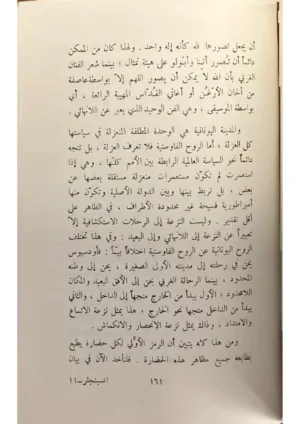 أن يجعل تصورها لله كأنه إله واحد . ولهذا كان من الممكن
دائماً أن تُصور أثينا وأبولو على هيئة تمثال ؛ بينما شعر الفنان
الغربي بأن الله لا يمكن أن يصور اللهم إلا بواسطة عاصفة
من ألحان الأرغن أو أغاني القُدّاس المهيبة الرائعة ، أي
بواسطة الموسيقى ، وهي الفن الوحيد الذي يعبر عن اللانهائي .
والمدينة اليونانية هي الوحدة المطلقة المنعزلة في سياستها
كل العزلة ؛ أما الروح الفاوستية فلا تعرف العزلة ، بل تتجه
دائماً نحو السياسة العالمية الرابطة بين الأمم كلها ، وهي إذا
استعمرت لم تكوّن مستعمرات منعزلة مستقلة بعضها عن
بعض ، بل تربط بينها وبين الدولة الأصلية وتكوّن منها
أمبراطورية فسيحة غير محدودة الأطراف ، في الظاهر على
أقل تقدير . وليست النزعة إلى الرحلات الاستكشافية إلا
تعبيراً عن النزعة إلى اللانهائي وإلى البعيد : وفي هذا تختلف
الروح اليونانية عن الروح الفاوستية اختلافاً بيّناً : فأودسيوس
يحن في رحلته إلى مدينته الأولى الصغيرة ، يحن إلى وطنه
المحدود ؛ بينما الرحالة الغربي يحن إلى الأفق البعيد والمكان
اللامحدود ؛ الأول يبدأ من الخارج متجهاً إلى الداخل ، والثاني
يبدأ من الداخل متجهاً نحو الخارج ؛ هذا يمثل نزعة الاتساع
والامتداد ، وذاك يمثل نزعة الانحصار والانكماش .
ومن هذا كله يتبين أن الرمز الأوّلي لكل حضارة يطبع
بطابعه جميع مظاهر هذه الحضارة . فلنأخذ الآن في بيان
١٦١
اشبنجلر – ١١